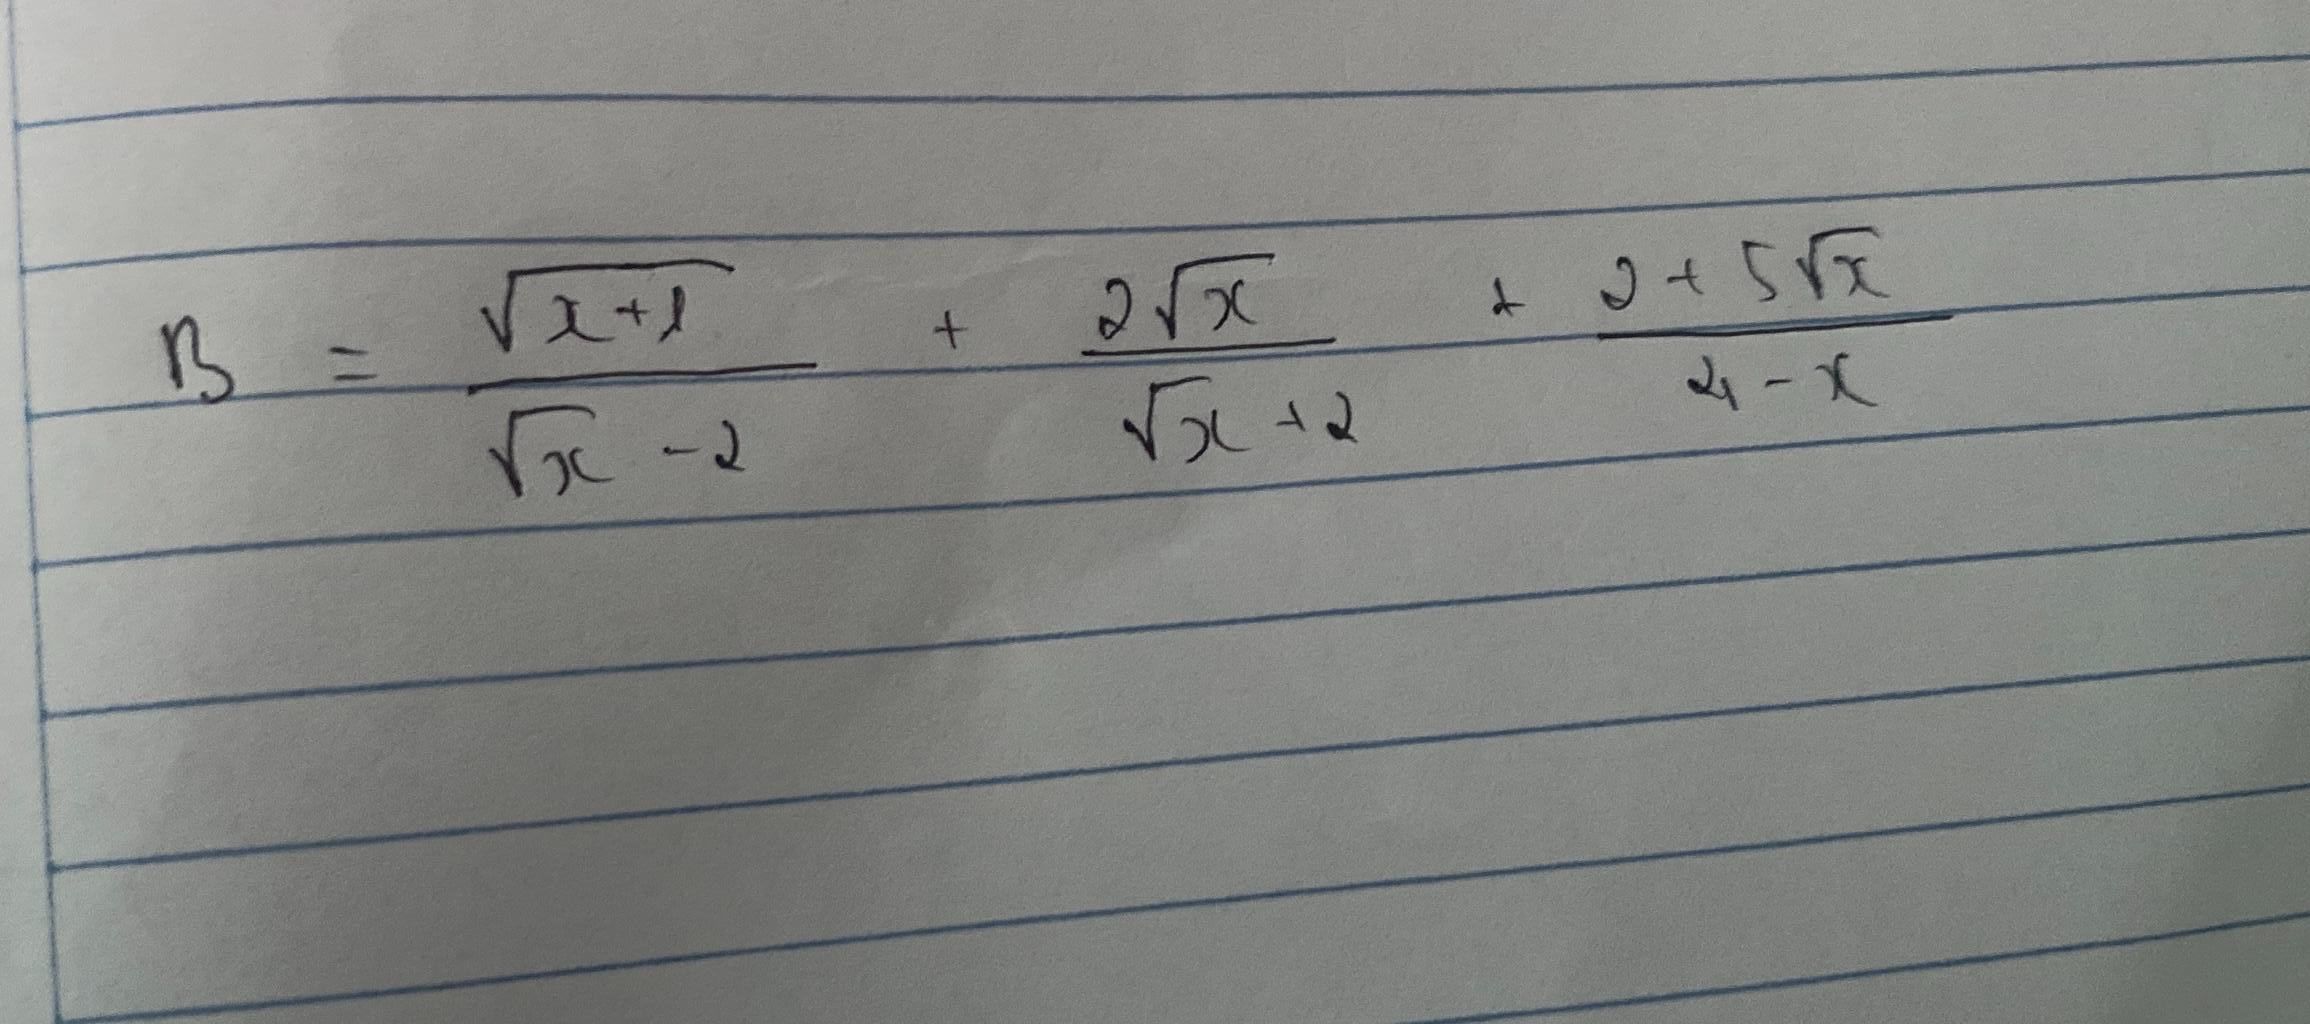 B = \frac{\sqrt{x+1}}{\sqrt{x}-2} + \frac{2\sqrt{x}}{\sqrt{x}+2} + \frac{2+5\sqrt{x}}{4-x}